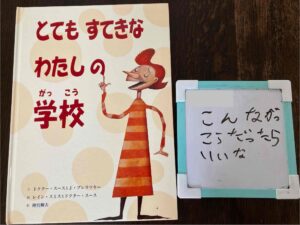 とても すてきな
わたしの
がっ こう
学校
文 ドクター・スースとJ・プレラツキー
絵 レイン・スミスとドクター・スース
こんながっ
こうだったら
いいな